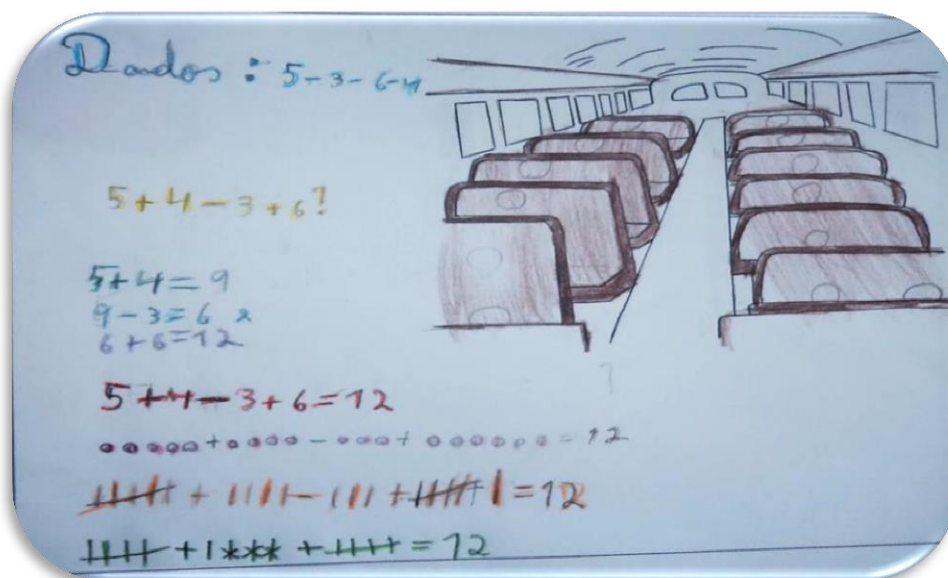 Dados : 5-3-6-4
5+4-3+6?
5+4=9
9-3=6
6+6=12
5+4-3+6=12
ooooo+oooo-ooo+oooooo=12
||||| + ||||-||| +||||| |=12
||||| +|*** +||||| =12
?